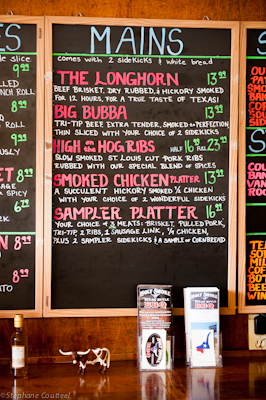 ES
MAINS
le slice
comes with 2 sideKicks & white bread
9.99
THE LONGHORN 13.99
BEEF BRISKET, DRY RUBBED, & HICKORY SMOKED
FOR 12 HOURS, FOR A TRUE TASTE OF TEXAS!
8.99
BIG BUBBA 13.99
TRI-TIP BEEF EXTRA TENDER, SMOKED to PERFECTION
THIN SLICED WITH YOUR CHOICE OF 2 SIDEKICKS
HIGH on the HOG RIBS Half 16.99 Full 23.99
SLOW SMOKED ST. LOUIS CUT PORK RIBS
RUBBED WITH OUR SPECIAL BLEND OF SPICES
SMOKED CHICKEN PLATTER 13.99
A SUCCULENT HICKORY SMOKED 1/2 CHICKEN
WITH YOUR CHOICE OF 2 WONDERFUL SIDEKICKS
SAMPLER PLATTER 16.99
YOUR CHOICE of 3 MEATS: BRISKET, PULLED PORK,
TRI-TIP, 2 RIBS, 1 SAUSAGE LINK, 1/4 CHICKEN,
PLUS 2 SAMPLER SIDEKICKS & A SAMPLE of CORNBREAD
HOLY SMOKE
TEXAS STYLE
BBQ
HOLY SMOKE
TEXAS STYLE
BBQ
© Stephane Coutteel